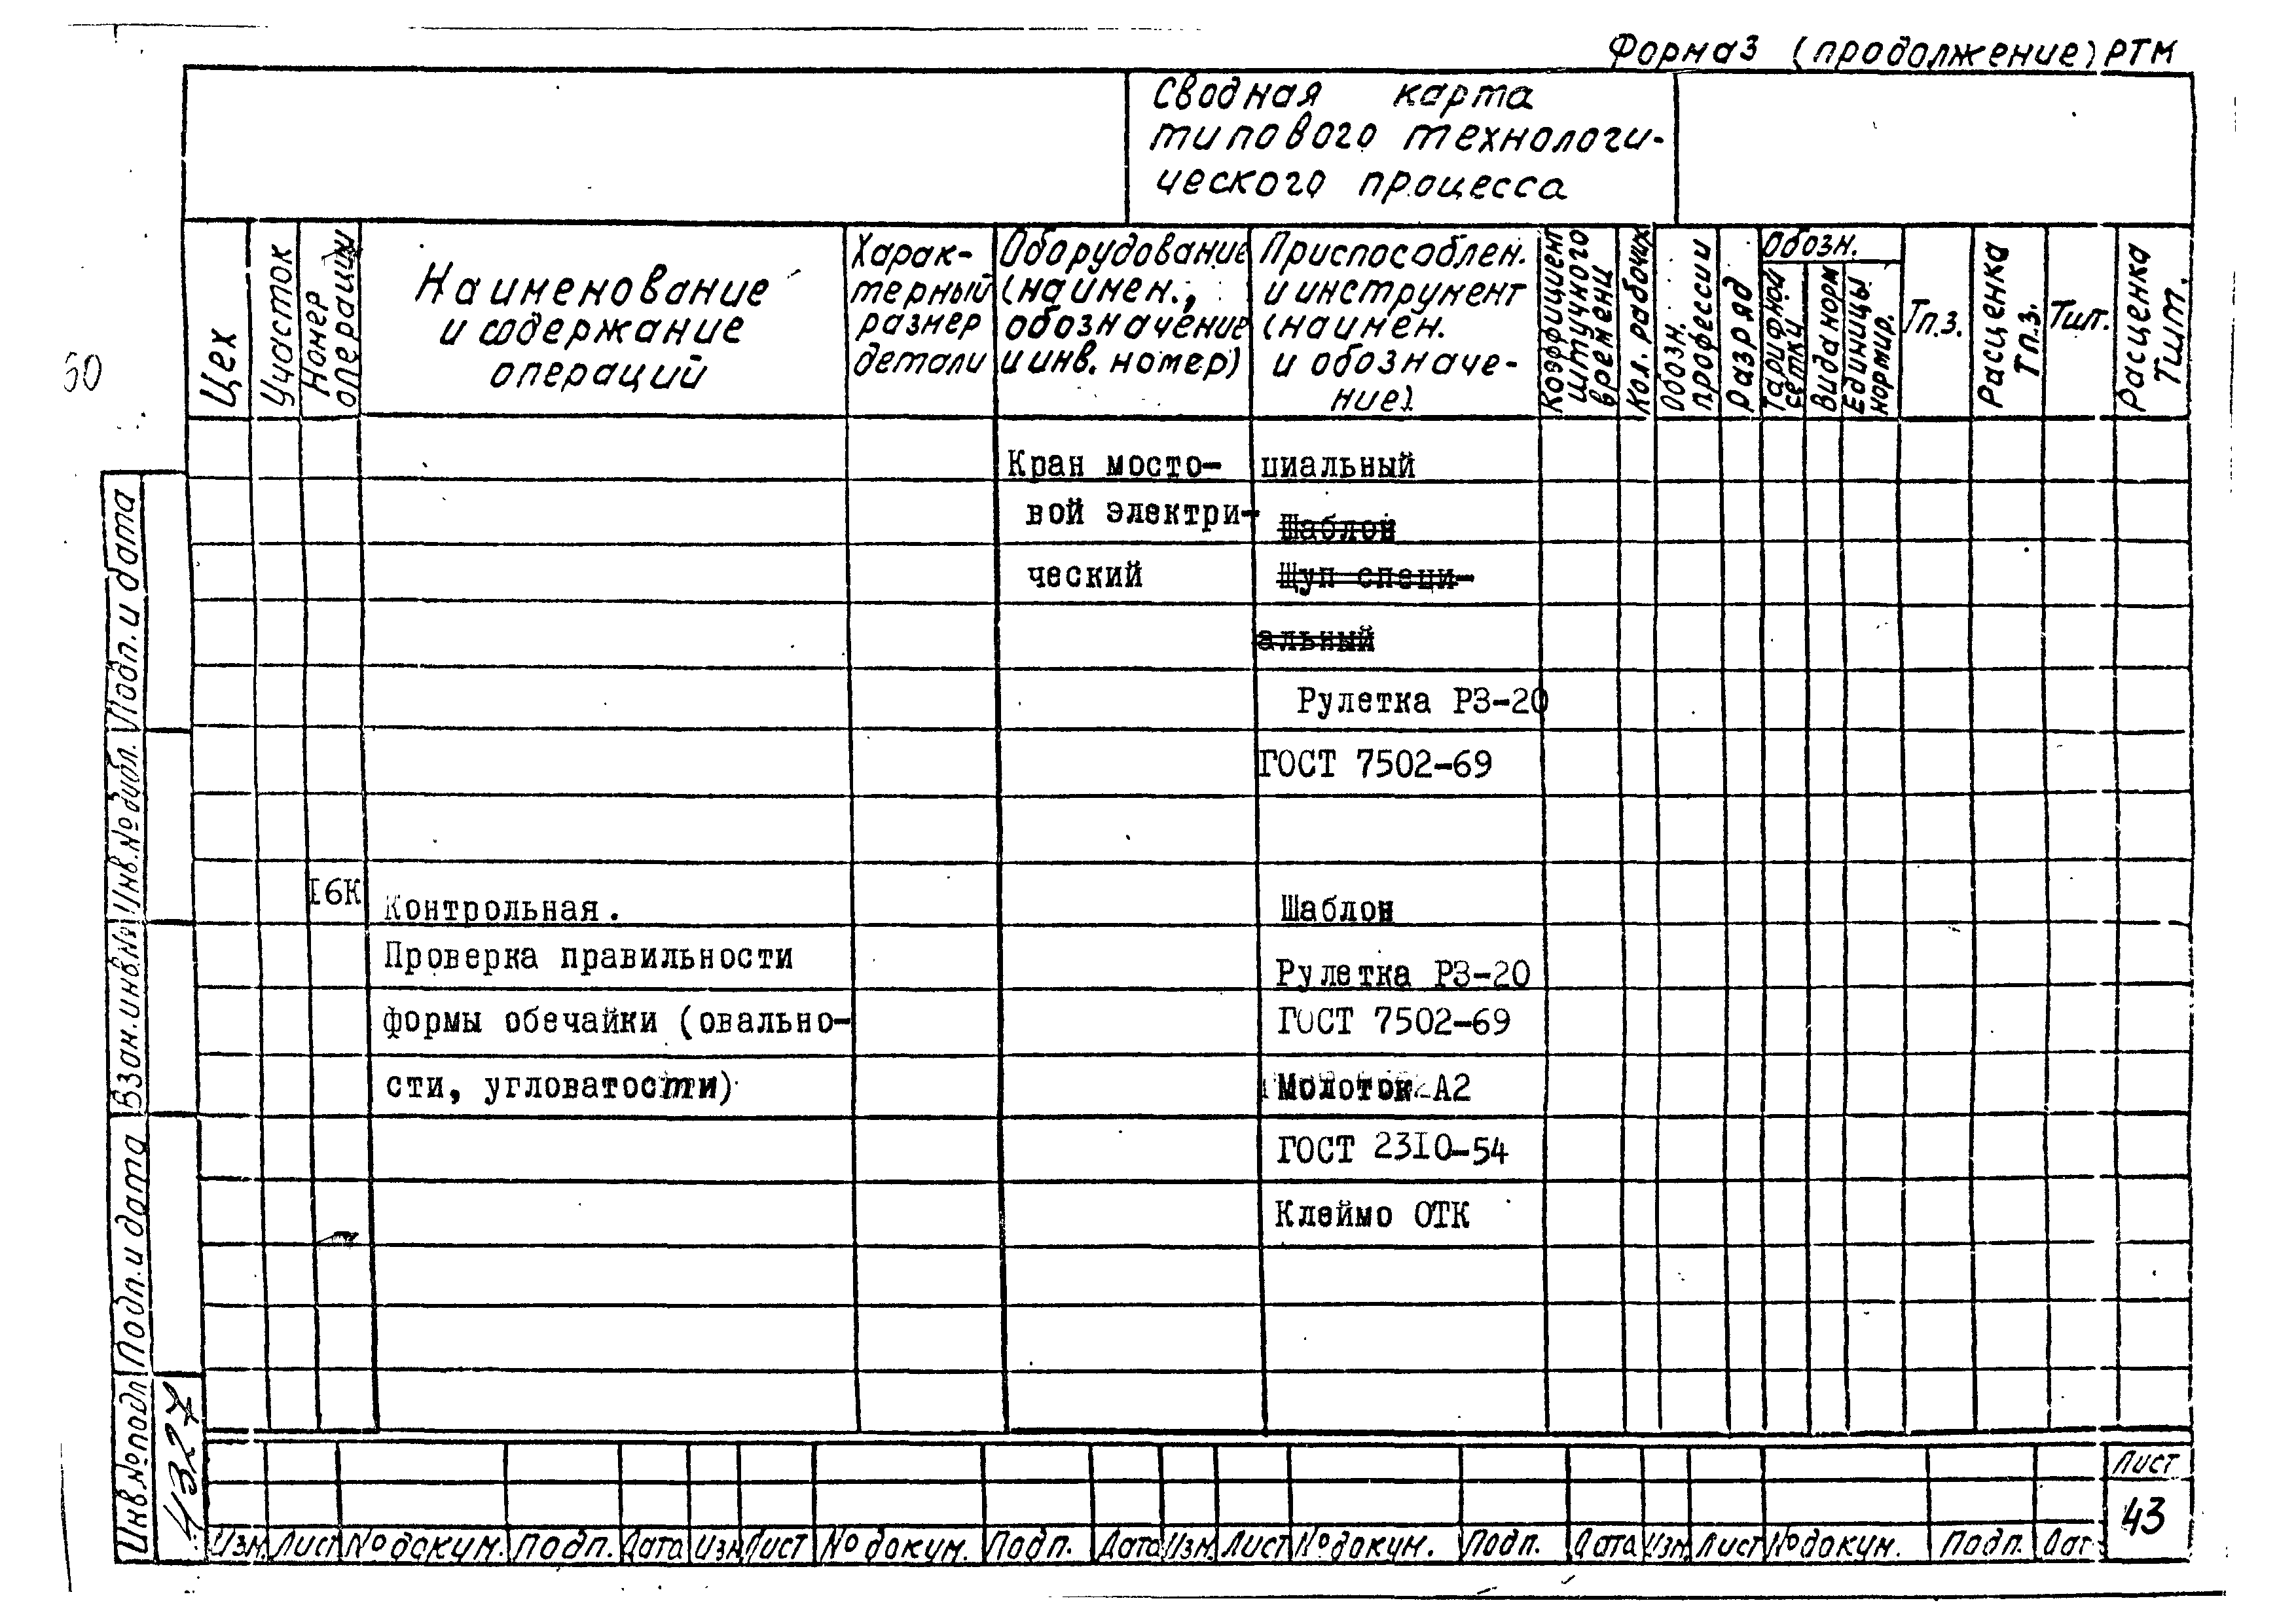 Форма 3 (продолжение) РТМ
Сводная карта
типового технологи-
ческого процесса
Цех
Участок
Номер
операции
Наименование
и содержание
операций
Харак-
терный
размер
детали
Оборудование
(наимен.,
обозначение
и инв. номер)
Приспособлен.
и инструмент
(наимен.
и обозначе-
ние)
Коэффициент
штучного
времени
Кол. рабочих
Обозн.
профессии
Разряд
Обозн.
Тарифной
сетки
Вида норм
Единицы
нормир.
Тп.з.
Расценка
Тп.з.
Тшт.
Расценка
Тшт.
Кран мосто- циальный
вой электри- Шаблон
ческий Щуп специ-
альный
Рулетка РЗ-20
ГОСТ 7502-69
I6К Контрольная. Шаблон
Проверка правильности Рулетка РЗ-20
формы обечайки (овально- ГОСТ 7502-69
сти, угловатости) Молоток А2
ГОСТ 23I0-54
Клеймо ОТК
Подп. и дата
Инв.№ дубл.
Взам.инв.№
Подп. и дата
Инв.№ подл
4327
Изм. Лист № докум. Подп. Дата Изм Лист № докум. Подп. Дата Изм. Лист № докум. Подп. Дата Изм Лист № докум. Подп. Дат
Лист
43